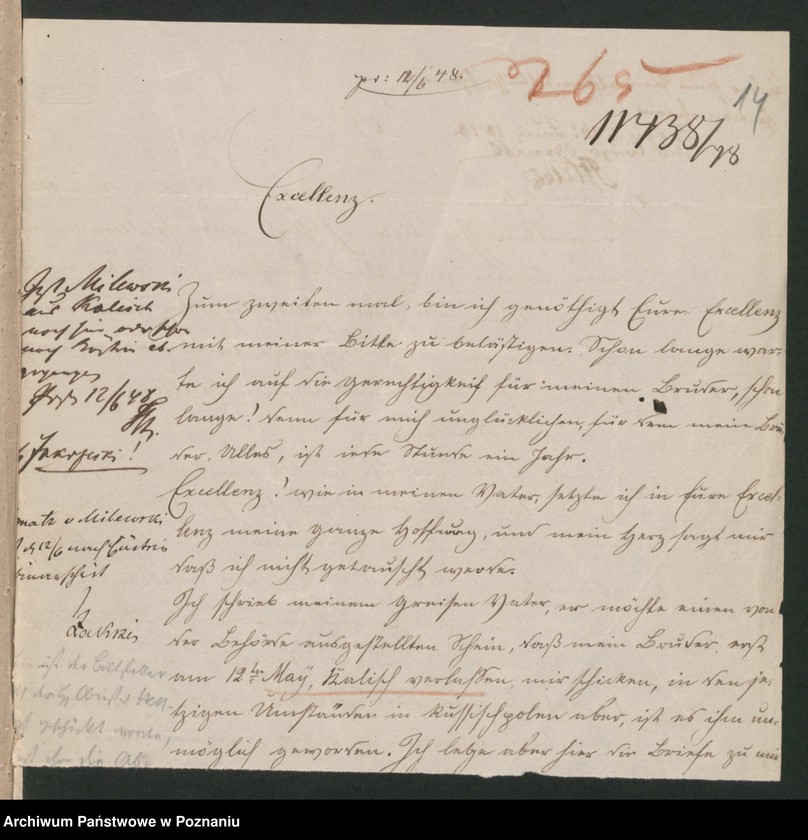 pr: 12/6 48.
265
14
11438/48
Excellenz.
Zum zweiten mal, bin ich genöthigt Eure Excellenz
mit meiner Bitte zu belästigen. Schon lange war-
te ich auf die gerechtigkeit für meinen Bruder, schon
lange! denn für mich unglücklichen, für dem mein Bru-
der, Alles, ist jede Stunde ein Jahr.
Excellenz! wie in meinen Vater, setzte ich in Eure Excel-
lenz meine ganze Hoffnung, und mein Herz sagt mir
daß ich nicht getauscht werde.
Ich schrieb meinem greisen Vater, er möchte einen von
der Behörde ausgestellten Schein, daß mein Bruder, erst
am 12ten May, Kalisch verlassen, mir schicken, in den je-
tzigen Umständen in Russischpolen aber, ist es ihm un-
möglich geworden. Ich lege aber hier die Briefe zu mir
Ist Milewski
aus Kalisch
noch hier oder schon
nach Küstrin ab-
gegangen
12/6 48
v Milewski
12/6 nach Cüstrin
ist der Bittsteller
Archiwum Państwowe w Poznaniu